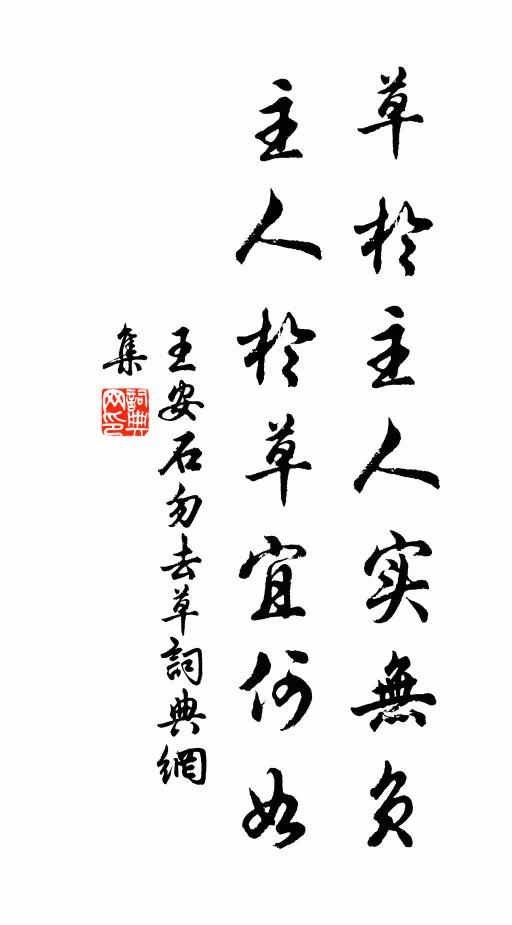 草於主人实無负
主人於草宜何如
王安石勿去草詞典網
集
詞典
网印